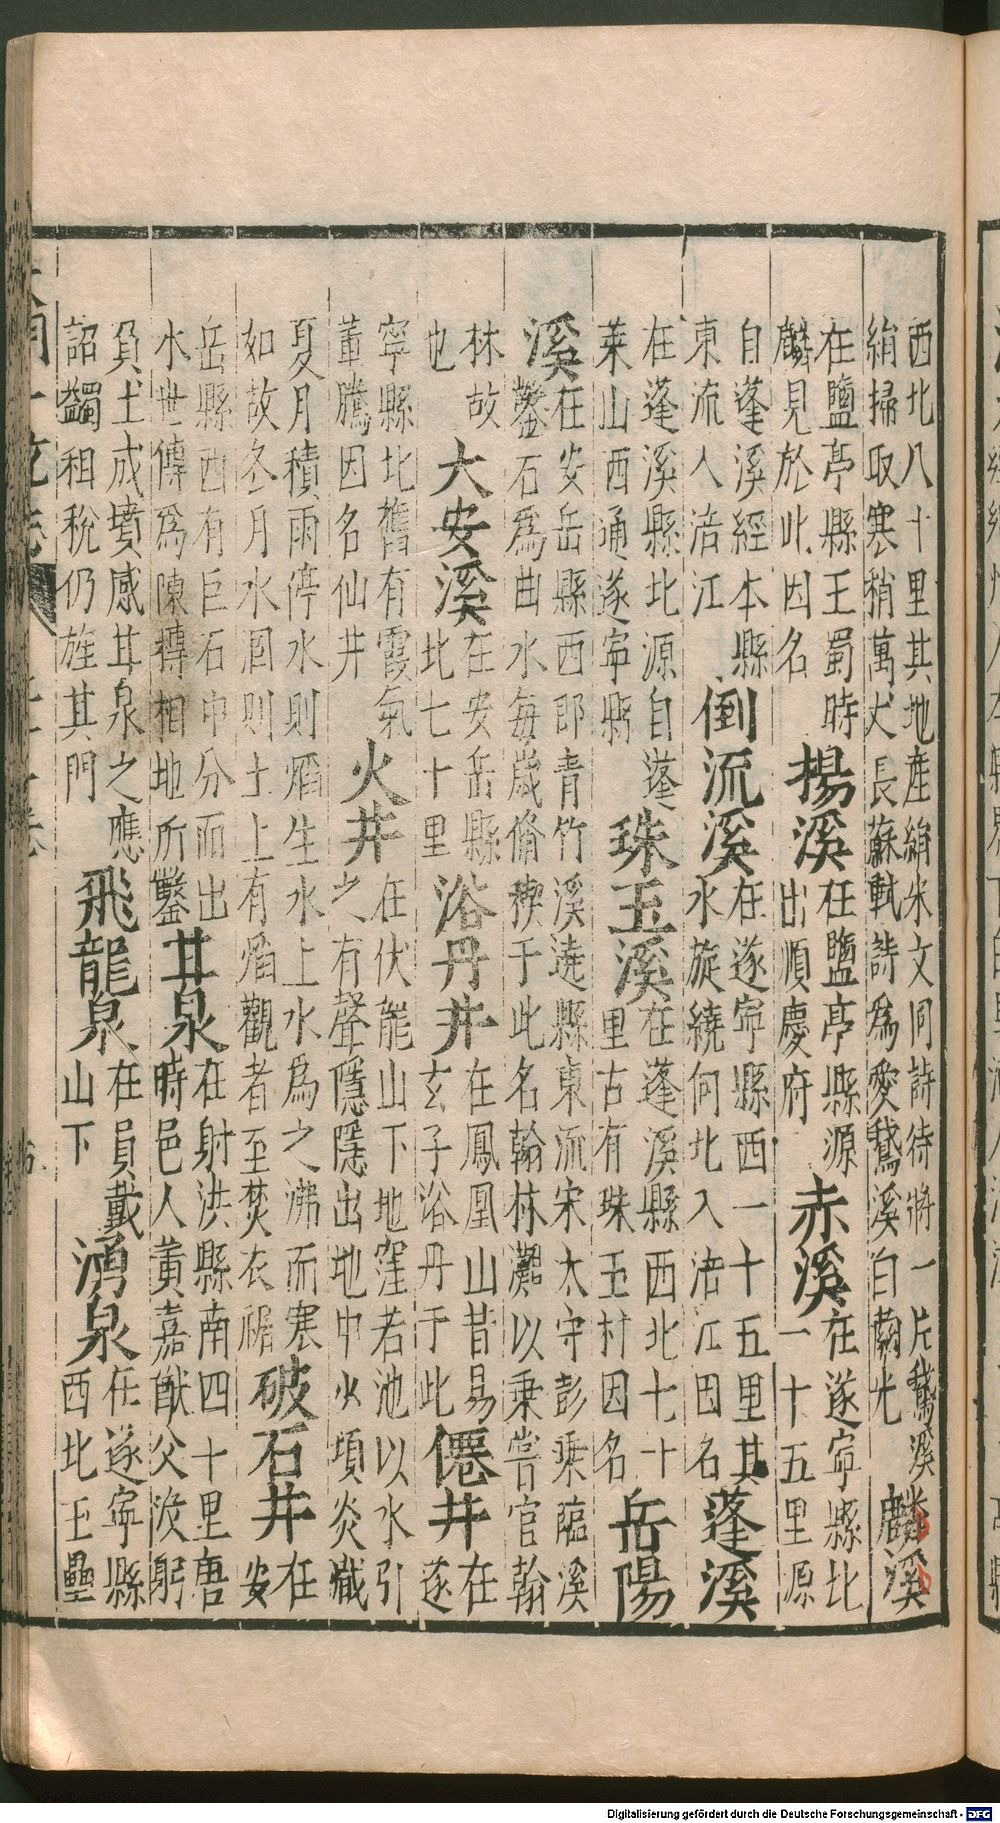 西北八十里其地産絹宋文同詩待將一片鵞溪
絹掃取寒稍萬丈長蘇軾詩爲愛鵞溪白繭光 麟溪
在鹽亭縣王蜀時
麟見於此因名 揚溪 在鹽亭縣源
出順慶府 赤溪 在遂寧縣北
一十五里源
自蓬溪經本縣
東流入涪江 倒流溪 在遂寧縣西一十五里其
水旋繞何北入涪江因名 蓬溪
在蓬溪縣北源自蓬
萊山西通遂寧縣 珠玉溪 在蓬溪縣西北七十
里古有珠玉村因名 岳陽
溪 在安岳縣西郎青竹溪遶縣東流宋太守彭乘臨溪
鑿石爲曲水每歲脩稧于此名翰林灘以乘嘗官翰
林故
也 大安溪 在安岳縣
北七十里 浴丹井 在鳳凰山昔易
玄子浴丹于此 僊井 在
遂
寧縣北舊有靈氣
董騰因名仙井 火井 在伏龍山下地窪若池以水引
之有聲隱隱出地中火項炎熾
夏月積雨停水則焰生水上水爲之沸而寒
如故冬月水涸則土上有焰觀者至焚衣裾 破石井 在
安
岳縣西有巨石中分而出
水世傳爲陳摶相地所鑿 甘泉 在射洪縣南四十里唐
時邑人黄嘉猷父歿躬
負土成墳感甘泉之應
詔蠲租稅仍旌其門 飛龍泉 在員戴
山下 湧泉 在遂寧縣
西北玉壘
Digitalisierung gefördert durch die Deutsche Forschungsgemeinschaft - DFG